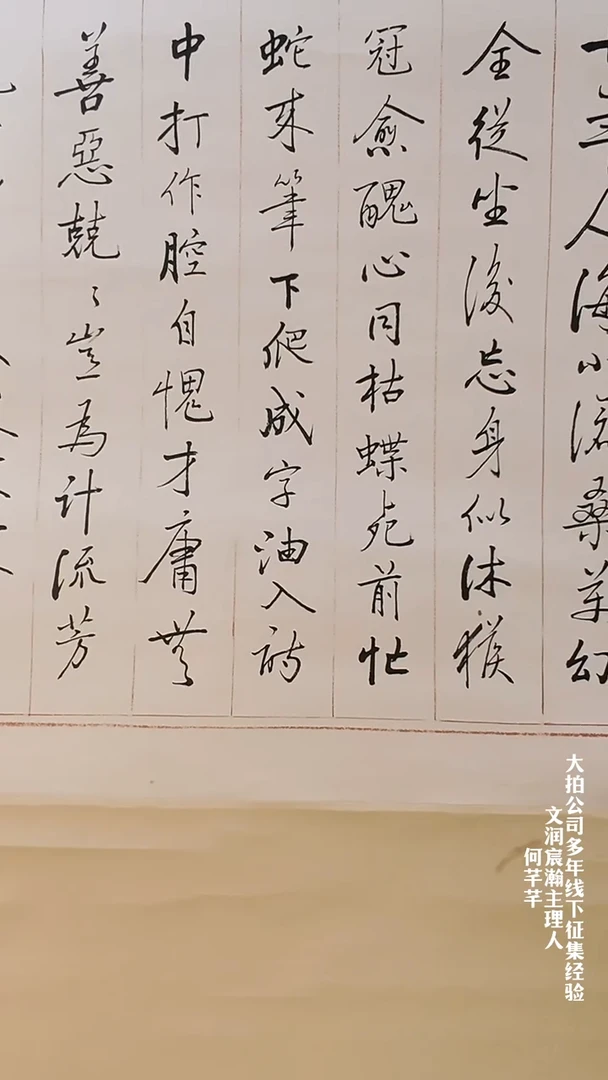 三人海小滄桑幻
全從坐後忘身似沐猴
冠愈醜心同枯蝶死前忙
蛇來筆下爬成字油入詩
中打作腔自愧才庸無
善惡兢〻豈為計流芳
大拍公司多年线下征集经验
文润宸瀚主理人
何芊芊